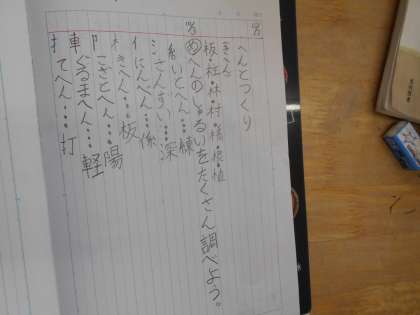 へんとつくり
きへん
板・柱・林・村・様・根・植
めへんのしゅるいをたくさん調べよう。
糸いとへん…練
氵さんずい…深
イにんべん…係
木きへん…板
阝こざとへん…陽
車くるまへん…軽
扌てへん…打